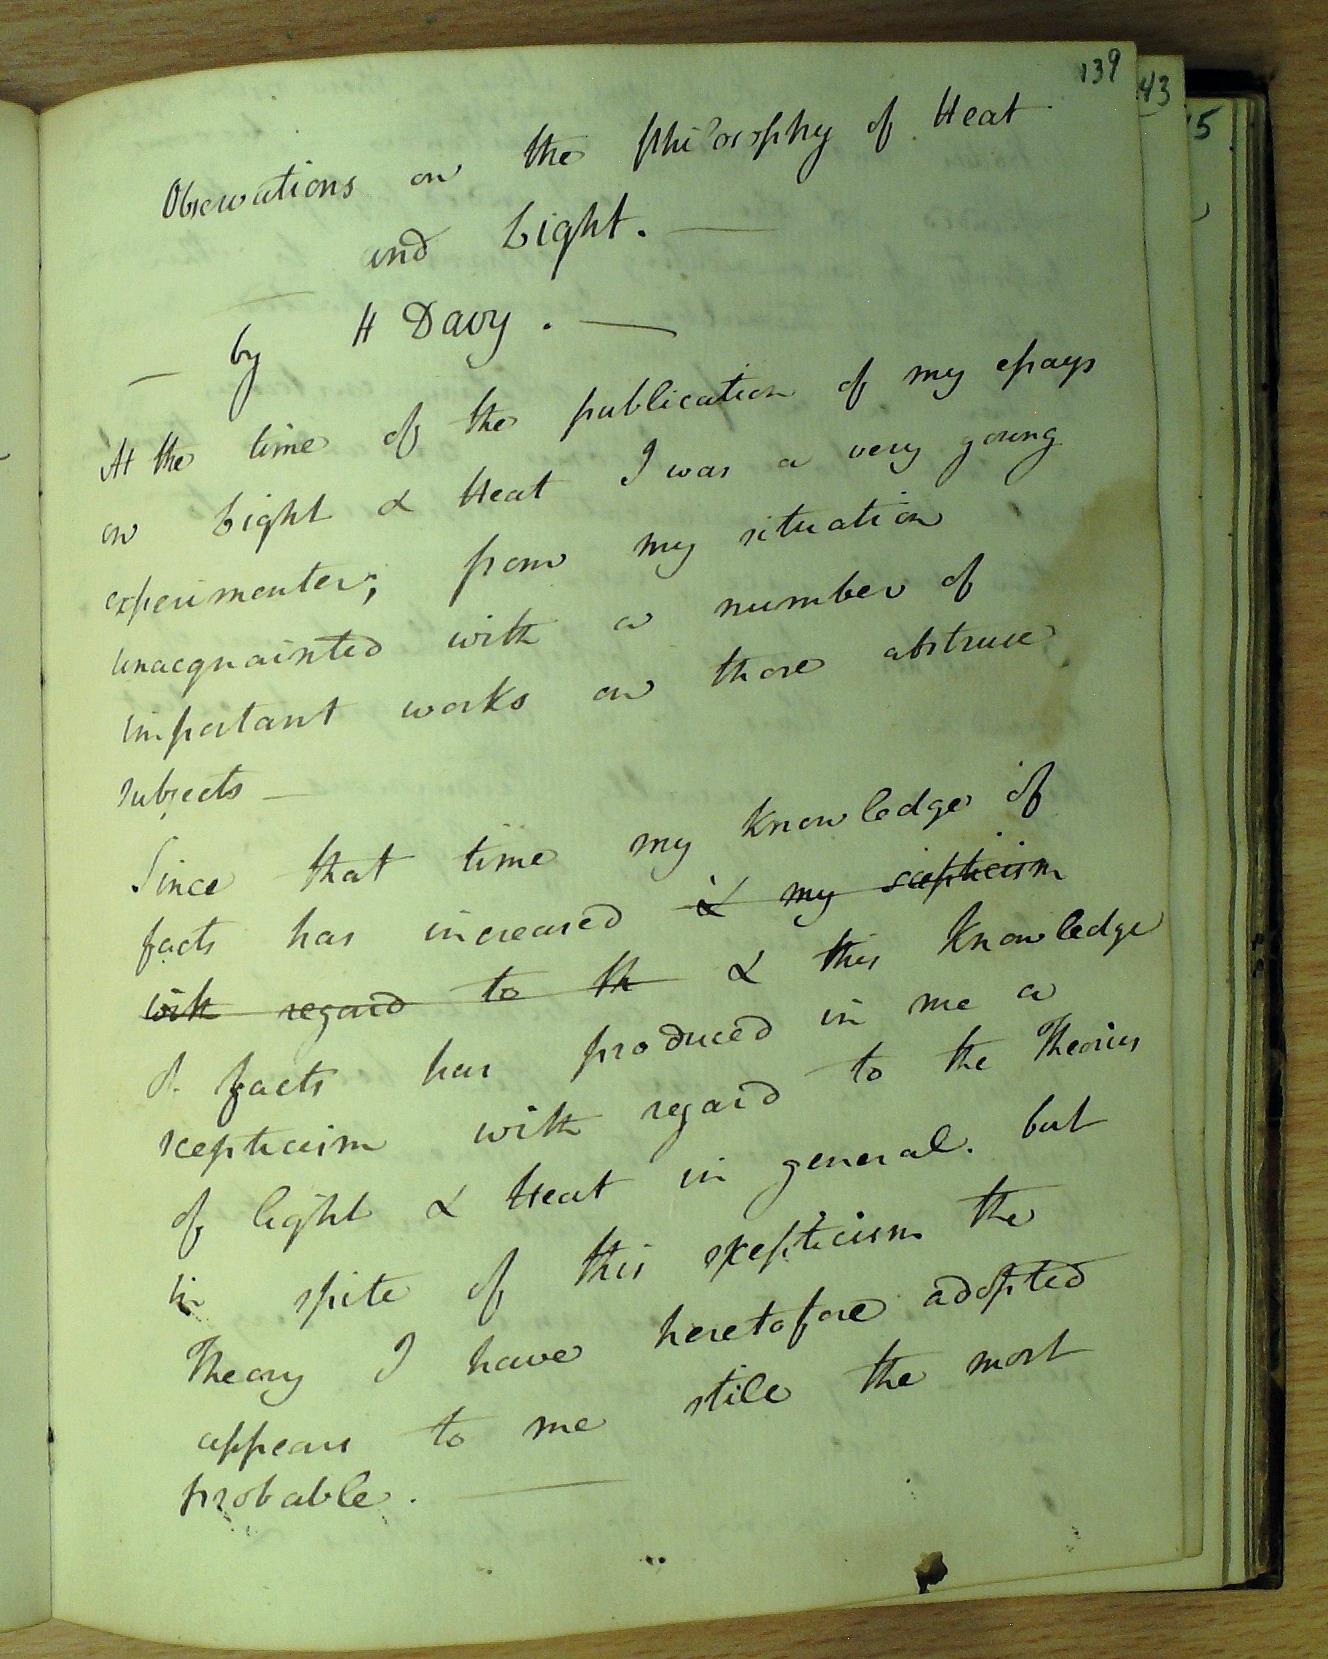 139
43
15
Observations on the philosophy of Heat
and Light. —
— by H Davy. —
At the time of the publication of my essays
on Light & Heat I was a very young
experimenter; from my situation
unacquainted with a number of
important works on those abstruse
subjects —
Since that time my knowledge of
facts has increased & my scepticism
with regard to th & this knowledge
of facts has produced in me a
scepticism with regard to the Theories
of light & Heat in general. but
in spite of this skepticism the
Theory I have heretofore adopted
appears to me still the most
probable. —